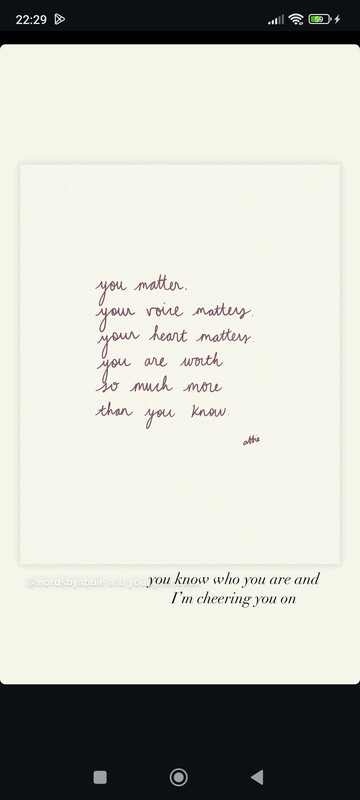 22:29
59
you matter.
your voice matters.
your heart matters.
you are worth
so much more
than you know.
abbie
@wordsbyabbie and
you know who you are and
I'm cheering you on